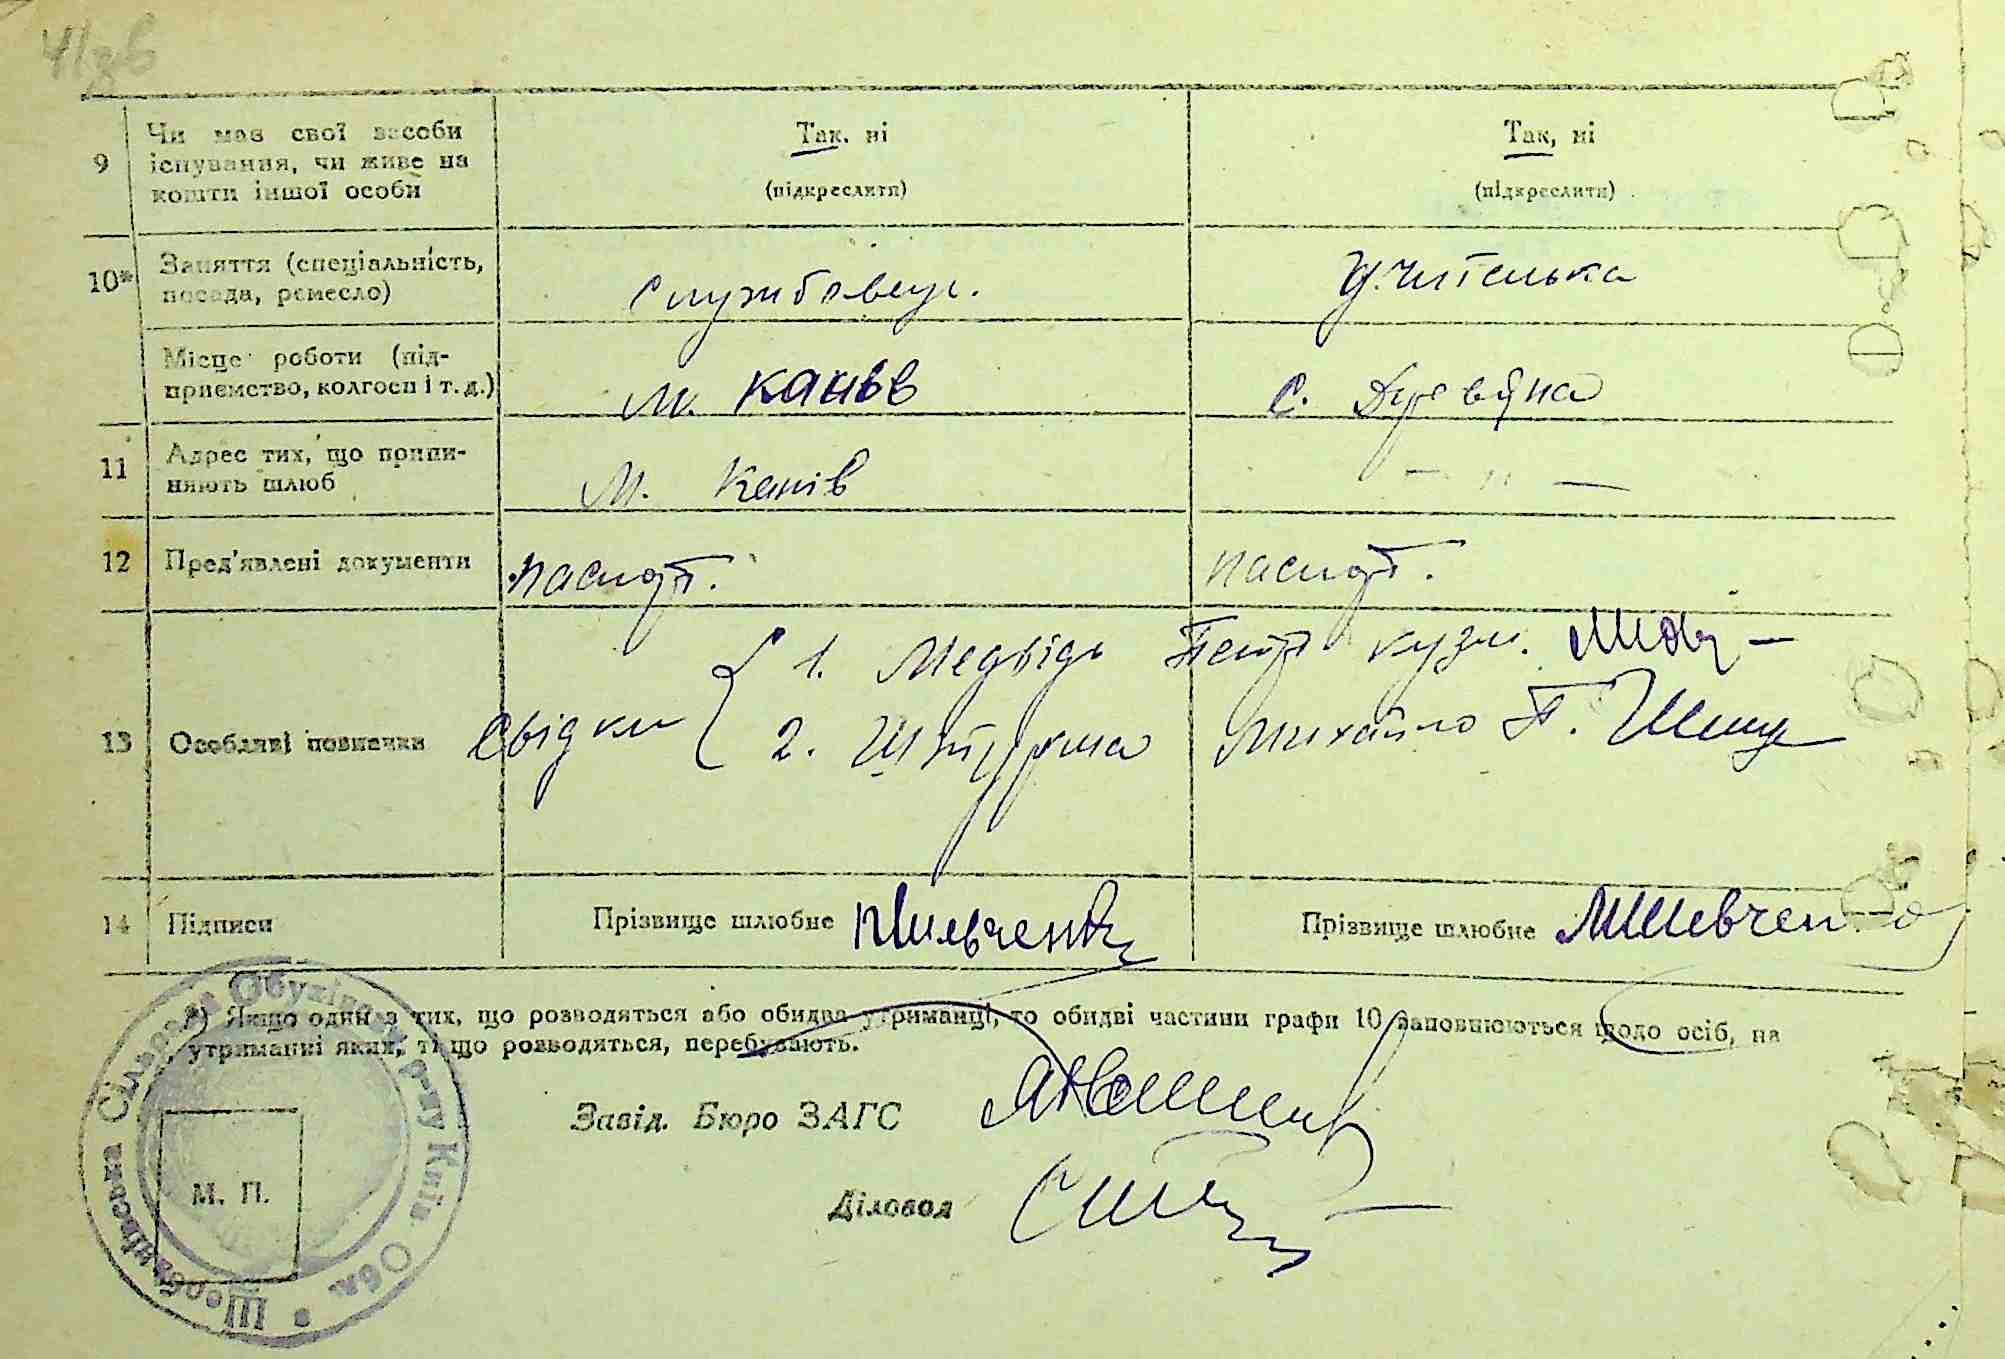 41зв
9 Чи має свої засоби Так. ні Так, ні
існування, чи живе на (підкреслити) (підкреслити)
кошти іншої особи
10* Заняття (спеціальність, Службовець. Учителька
посада, ремесло)
Місце роботи (під-
приємство, колгосп і т. д.) м. Канів с. Деревяна
11 Адрес тих, що припи- м. Канів — „ —
няють шлюб
12 Пред'явлені документи паспорт. паспорт.
1. Медвідь Петро Кузм.
13 Особливі помненки Свідки 2. Михайло П.
14 Підписи Прізвище шлюбне Прізвище шлюбне МШевченко
*) Якщо один з тих, що розводяться або обидва утриманці, то обидві частини графи 10 заповнюються щодо осіб, на
утриманні яких, ті що розводяться, перебувають.
Завід. Бюро ЗАГС
Діловод
М. П.
Щербанівська Сільрада Обухівського р-ну Київ. Обл.